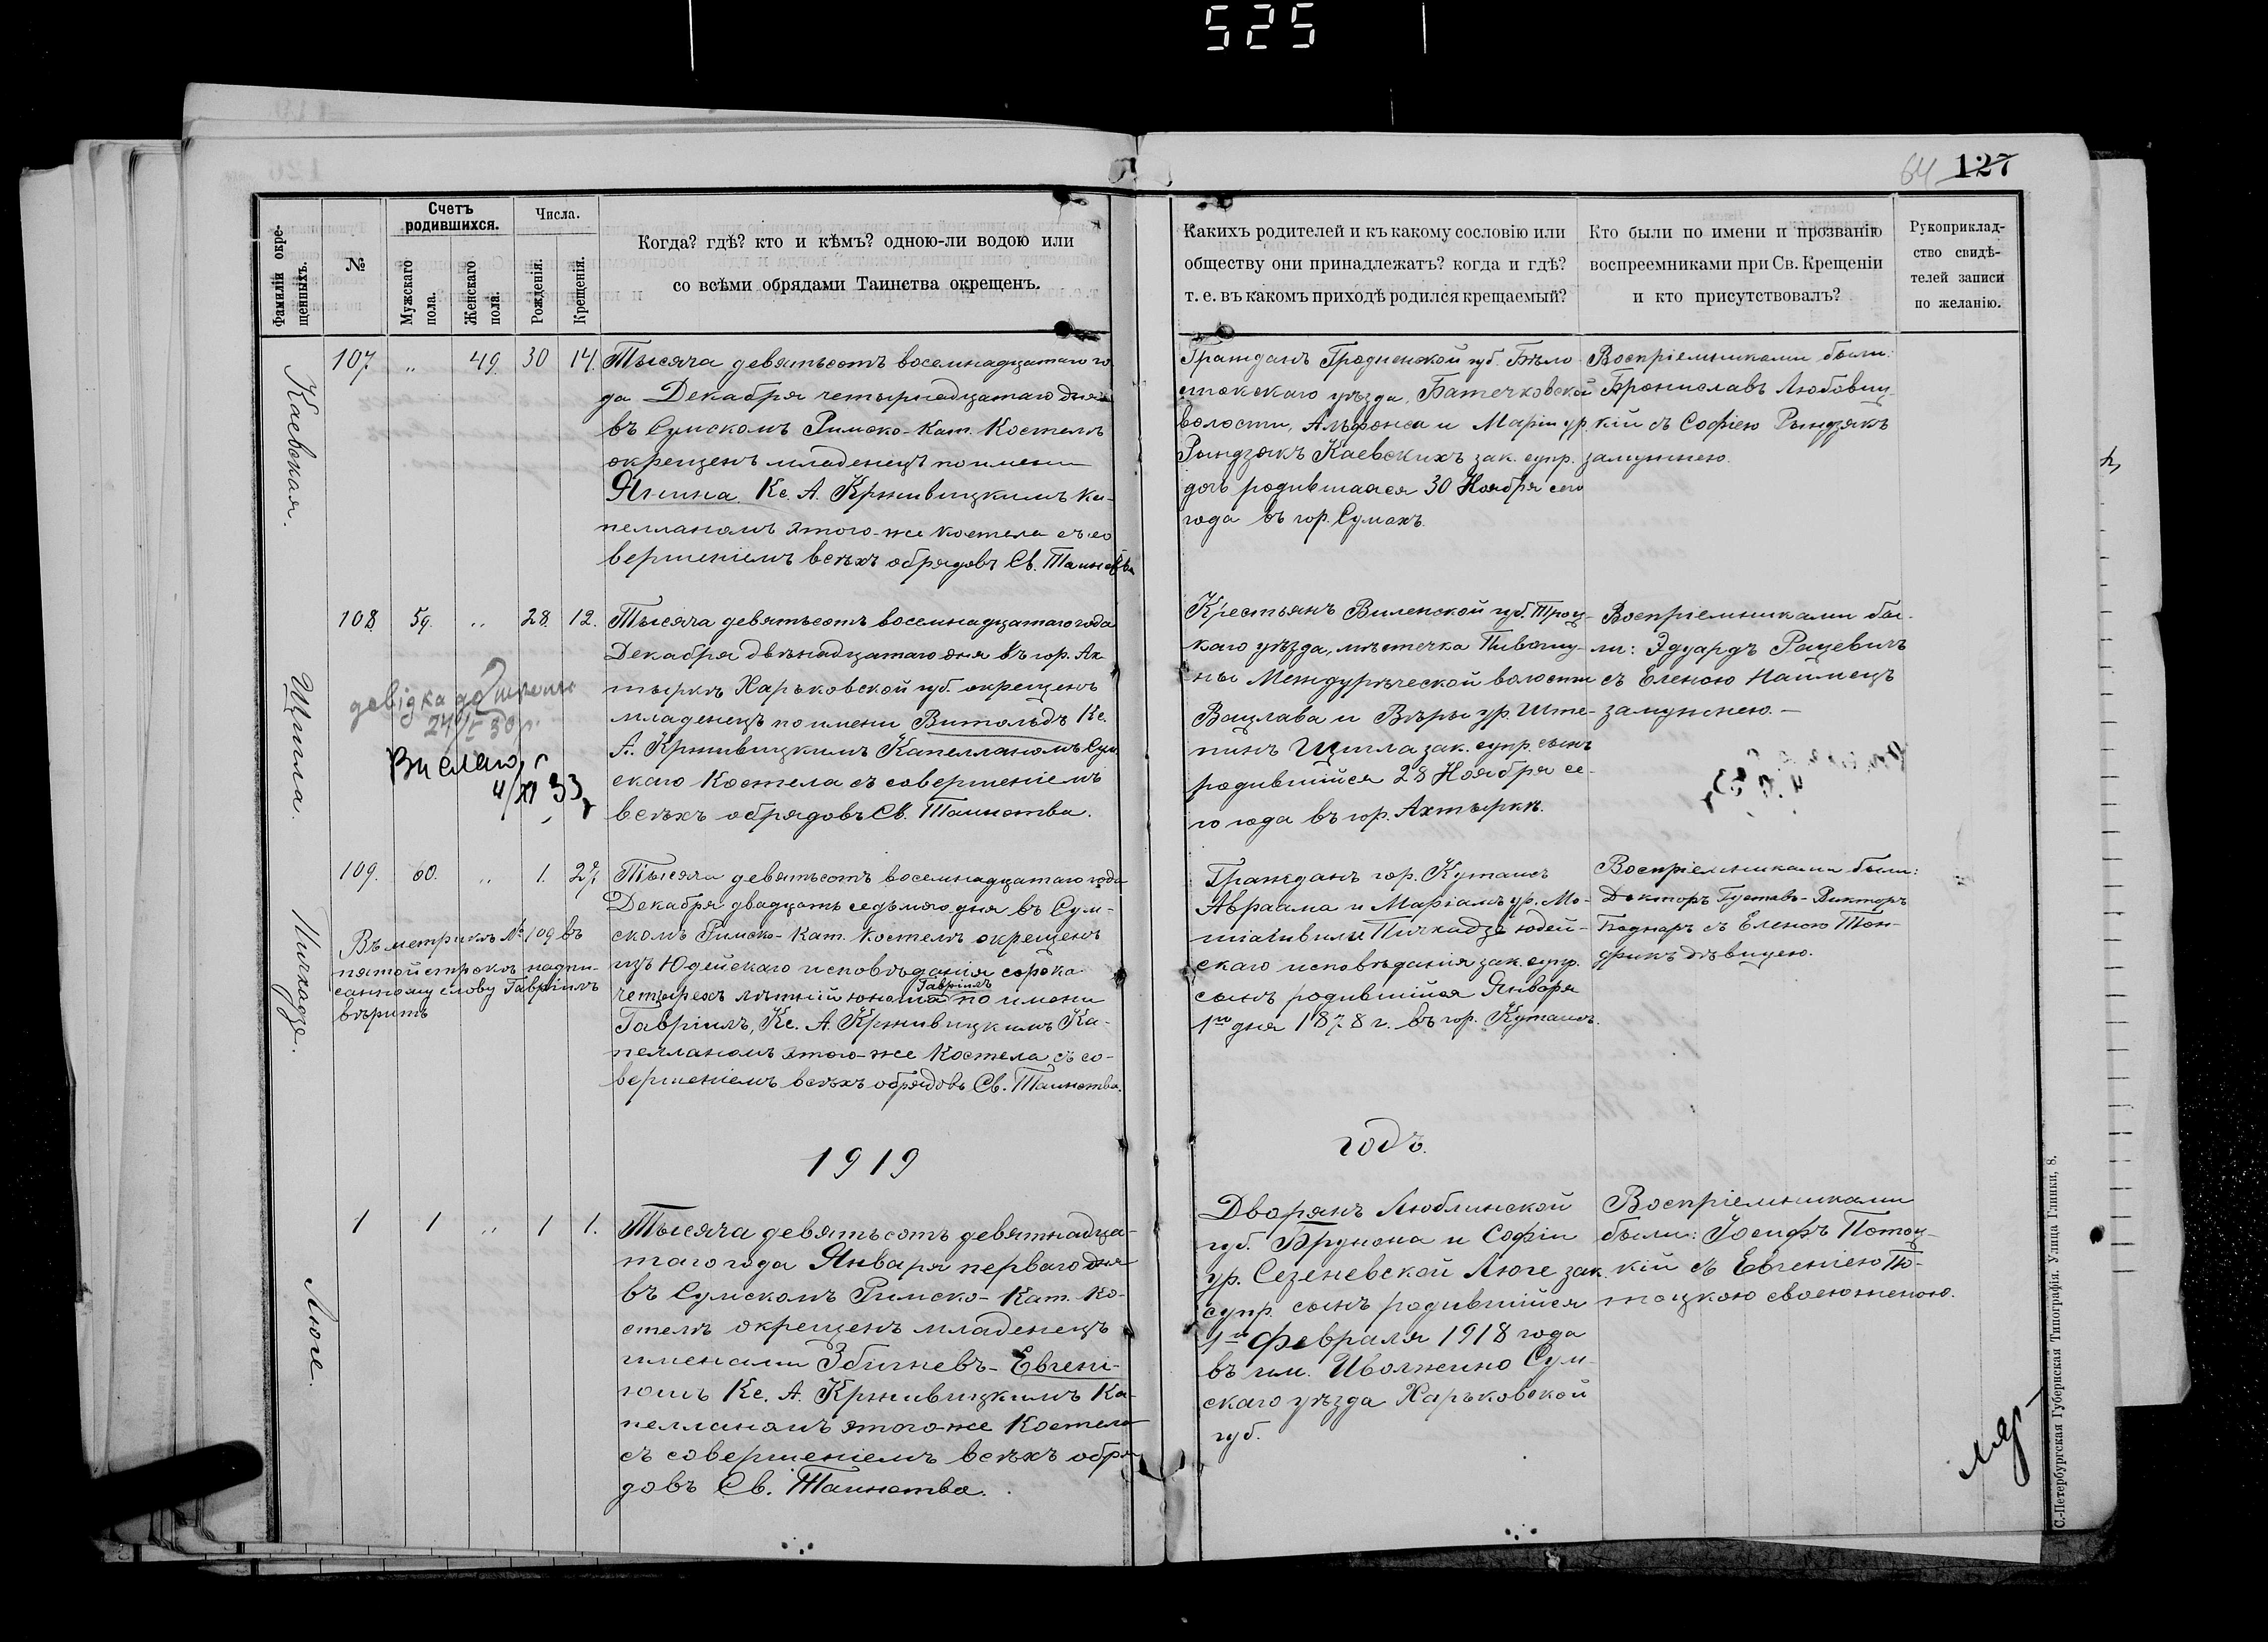 525
64 127
Фамиліи окре-
щенныхъ.
№
Счетъ
родившихся.
Мужскаго
пола.
Женскаго
пола.
Числа.
Рожденія.
Крещенія.
Когда? гдѣ? кто и кѣмъ? одною-ли водою или
со всѣми обрядами Таинства окрещенъ.
Какихъ родителей и къ какому сословію или
обществу они принадлежатъ? когда и гдѣ?
т. е. въ какомъ приходѣ родился крещаемый?
Кто были по имени и прозванію
воспреемниками при Св. Крещеніи
и кто присутствовалъ?
Рукоприклад-
ство свидѣ-
телей записи
по желанію.
Каевская.
107 „ 49. 30 14.
Тысяча девятьсотъ восемнадцатаго го-
да Декабря четырнадцатаго дня
въ Сумскомъ Римско-Кат. Костелѣ
окрещенъ младенецъ по имени
Янина. Кс. А. Крживицкимъ Ка-
пелланомъ этого-же Костела съ со
вершеніемъ всѣхъ обрядовъ Св. Таинства
Гражданъ Гродненской губ. Бѣло-
стокскаго уѣзда, Батечковской
волости, Альфонса и Маріи ур.
Рындзякъ Каевскихъ зак. супр.
дочь родившаяся 30 Ноября сего
года въ гор. Сумахъ.
Воспріемниками были:
Брониславъ Любовиц-
кій съ Софіею Рындзякъ
замужнею.
Щигла.
108 59. „ 28. 12.
довідка
24/I 30 р.
Вислано
4/XI 33 р
Тысяча девятьсотъ восемнадцатаго года
Декабря двѣнадцатаго дня въ гор. Ах-
тыркѣ Харьковской губ. окрещенъ
младенецъ по имени Витольдъ Кс.
А. Крживицкимъ Капелланомъ Сум
скаго Костела съ совершеніемъ
всѣхъ обрядовъ Св. Таинства.
Крестьянъ Виленской губ. Троц-
каго уѣзда, мѣстечка Пивошу-
ны Междурѣческой волости
Вацлава и Вѣры ур. Ште-
пинъ Щигла зак. супр. сынъ
родившійся 28 Ноября се-
го года въ гор. Ахтыркѣ.
Воспріемниками бы-
ли: Эдуардъ Рацевичъ
съ Еленою Наимецъ
замужнею. —
Пичхадзе.
109. 60. „ 1. 27.
Въ метрикѣ № 109 въ
пятой строкѣ надпи-
санному слову Гавріилъ
вѣрить
Тысяча девятьсотъ восемнадцатаго года
Декабря двадцать седьмого дня въ Сум-
скомъ Римско-Кат. Костелѣ окрещенъ
изъ Юдейскаго исповѣданія сорока
Гавріилъ
четырехъ лѣтній юноша по имени
Гавріилъ, Кс. А. Крживицкимъ Ка-
пелланомъ этого-же Костела съ со-
вершеніемъ всѣхъ обрядовъ Св. Таинства.
Гражданъ гор. Кутаисъ
Авраама и Маріамъ ур. Мо-
шіашвили Пичхадзе юдей-
скаго исповѣданія зак. супр.
сынъ родившійся Января
1го дня 1878 г. въ гор. Кутаисѣ.
Воспріемниками были:
Докторъ Густавъ-Викторъ
Боднаръ съ Еленою Тон-
фикъ дѣвицею.
1919 годъ.
Люге.
1 1 „ 1 1.
Тысяча девятьсотъ девятнадца-
таго года Января перваго дня
въ Сумскомъ Римско-Кат. Ко-
стелѣ окрещенъ младенецъ
именами Збигневъ-Евгені-
юшъ Кс. А. Крживицкимъ Ка-
пелланомъ этого-же Костела
съ совершеніемъ всѣхъ обря-
довъ Св. Таинства.
Дворянъ Люблинской
губ. Брунона и Софіи
ур. Сезеневской Люге зак.
супр. сынъ родившійся
1го Февраля 1918 года
въ им. Иволжино Сум-
скаго уѣзда Харьковской
губ.
Воспріемниками
были: Іосифъ Потоц-
кій съ Евгеніею По-
тоцкою своею женою.
С.-Петербургская Губернская Типографія. Улица Глинки, 8.